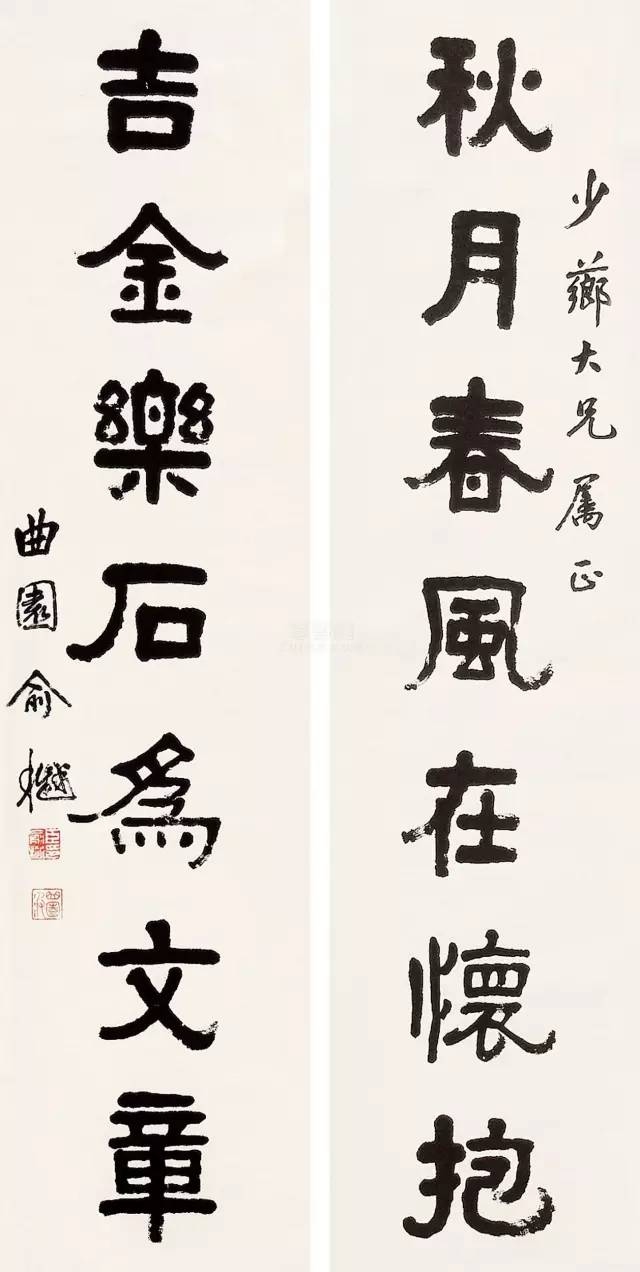 少薌大兄屬正
秋月春風在懷抱
吉金樂石為文章
曲園俞樾